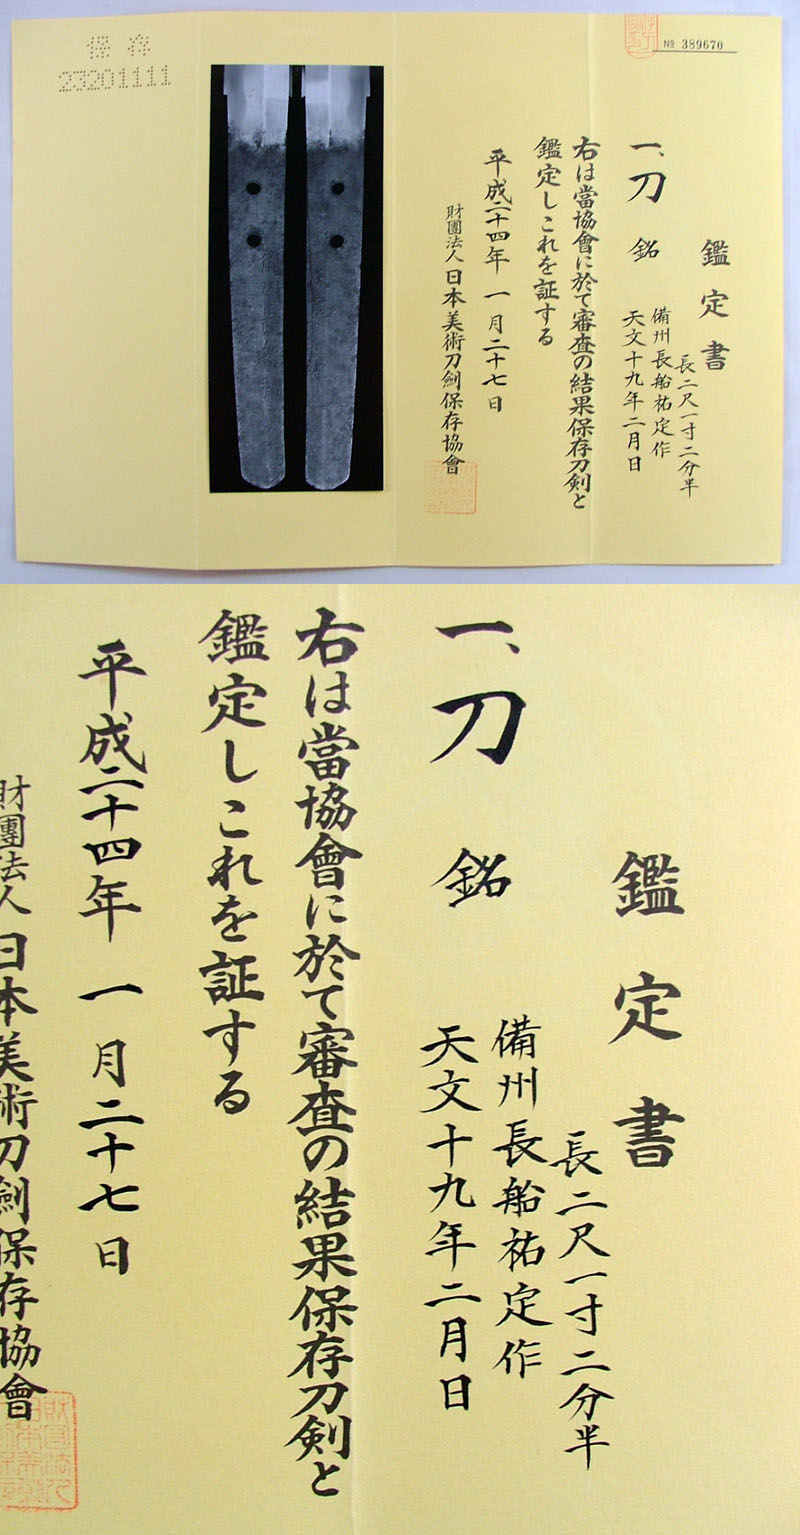 保存
23201111
№ 389670
鑑定書
長二尺一寸二分半
一、刀 銘
備州長船祐定作
天文十九年二月日
右は當協會に於て審査の結果保存刀剣と
鑑定しこれを証する
平成二十四年 一月二十七日
財團法人 日本美術刀劍保存協會
鑑定書
長二尺一寸二分半
一、刀 銘
備州長船祐定作
天文十九年二月日
右は當協會に於て審査の結果保存刀剣と
鑑定しこれを証する
平成二十四年 一月二十七日
財團法人 日本美術刀劍保存協會